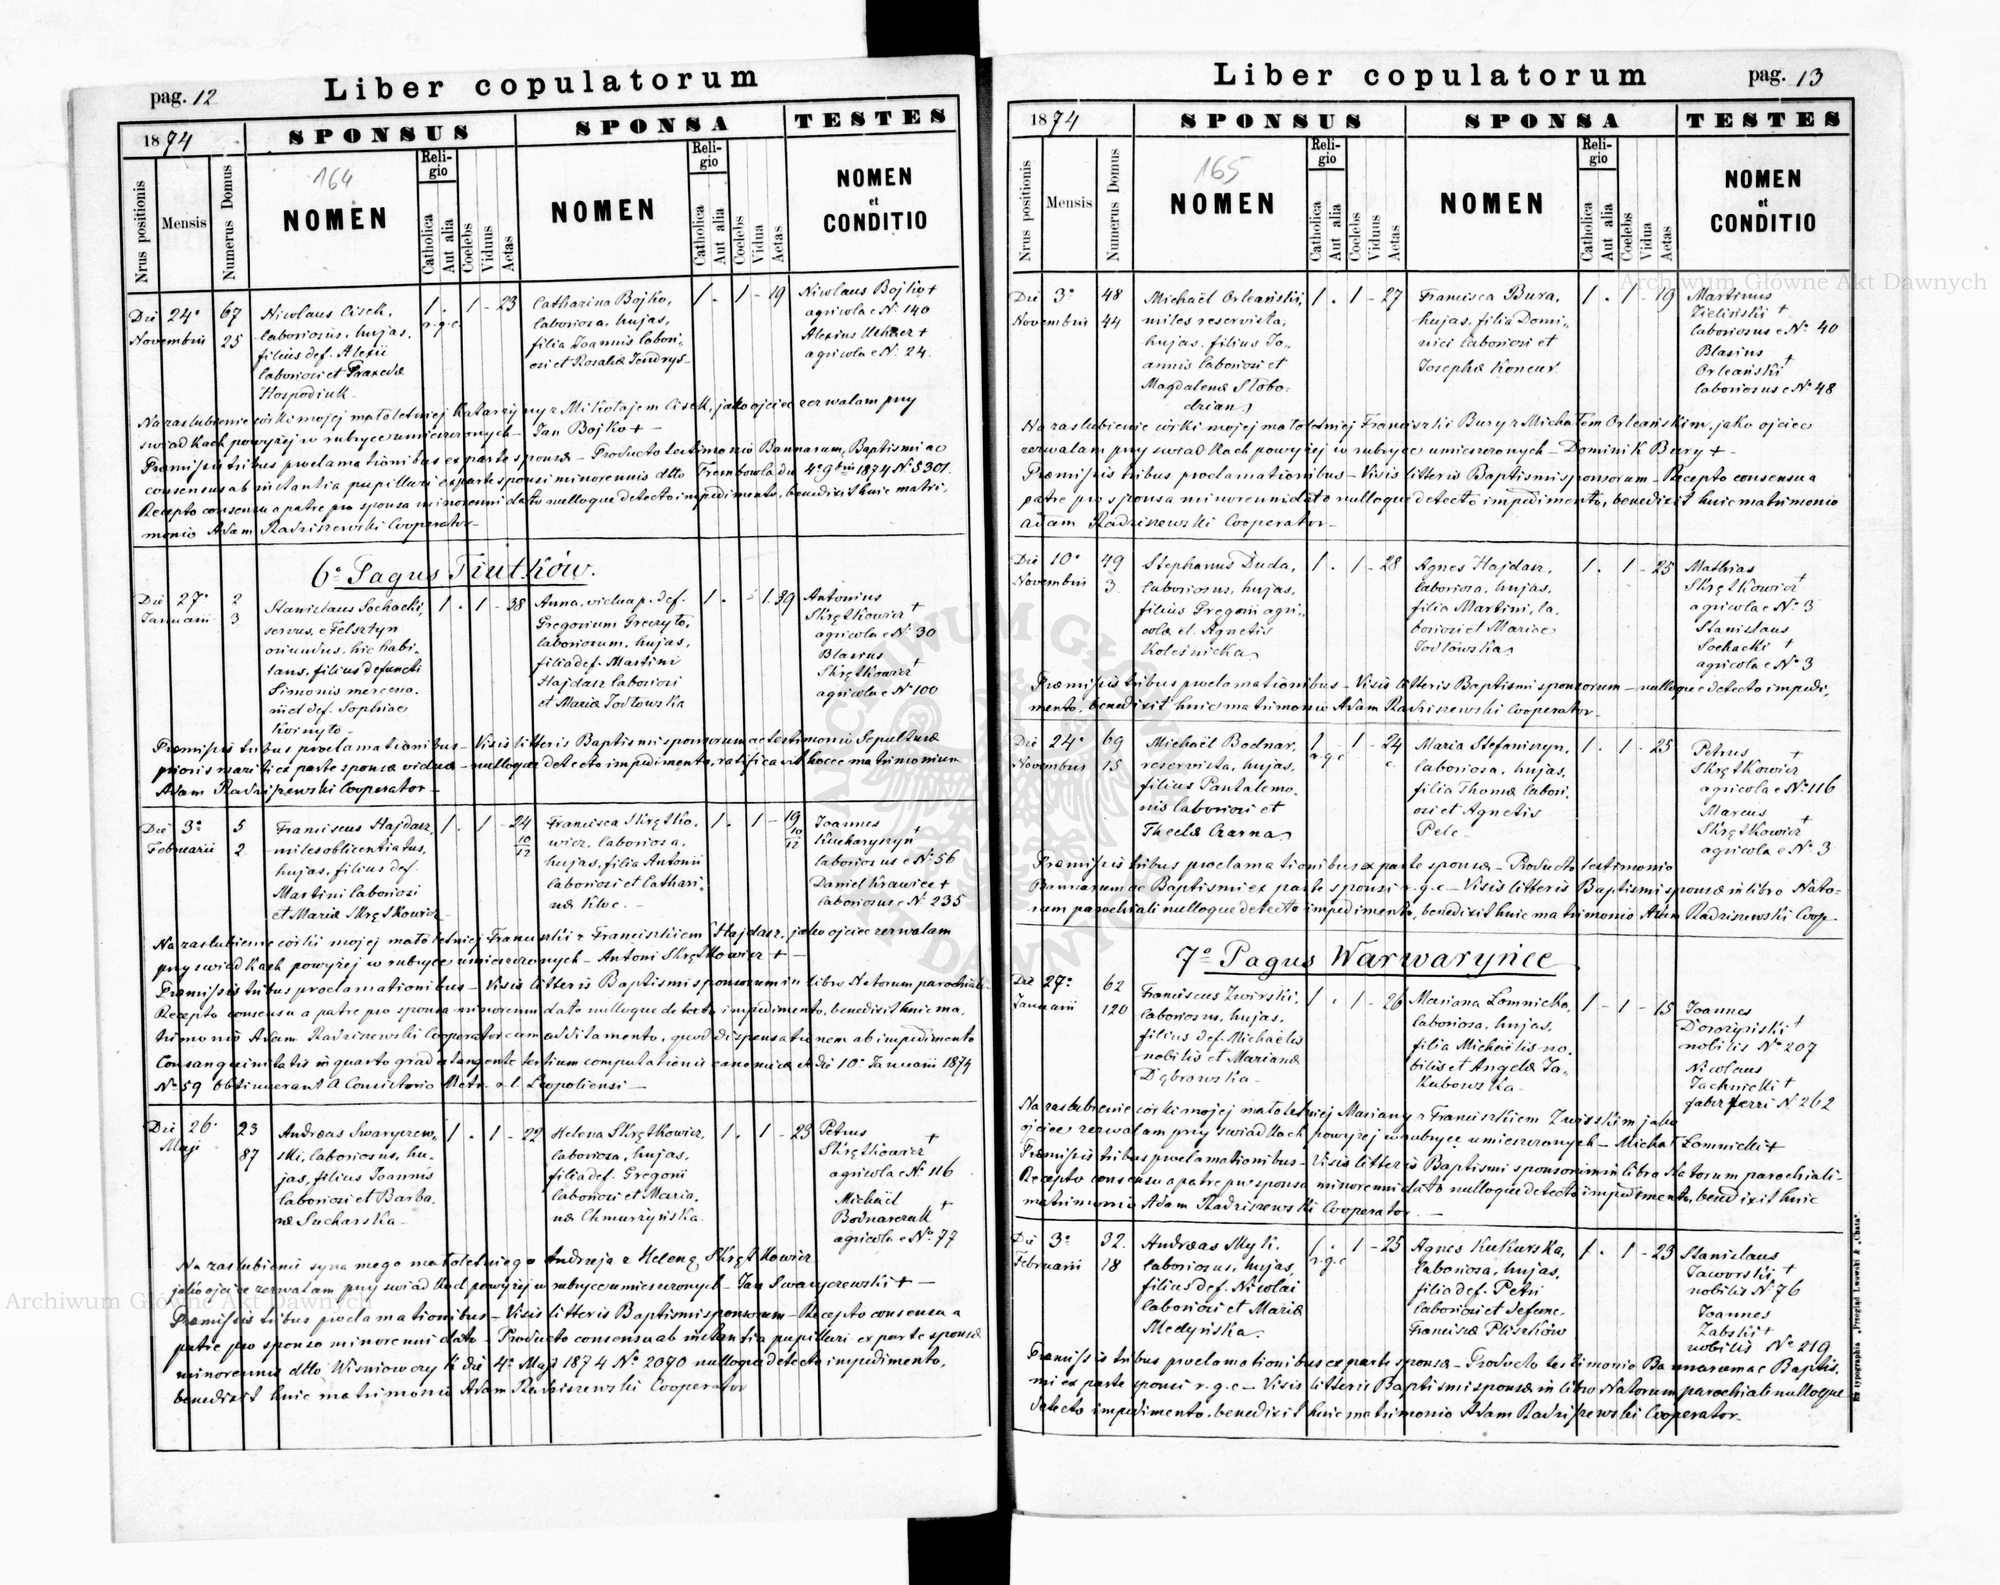 pag. 12
Liber copulatorum
1874
SPONSUS
SPONSA
TESTES
Nrus positionis
Mensis
Numerus Domus
164
NOMEN
Reli-
gio
Catholica
Aut alia
Coelebs
Viduus
Aetas
NOMEN
Reli-
gio
Catholica
Aut alia
Coelebs
Vidua
Aetas
NOMEN
et
CONDITIO
Die 24ᵃ
Novembris
67
25
Nicolaus Cisek,
laboriosus, hujas,
filius def. Alexii
laboriosi et Praxedæ
Hospodiuk
1 .
r.g.c.
1 - 23
Catharina Bojko,
laboriosa, hujas,
filia Joannis labori-
osi et Rosaliæ Jendrys-
1 . 1 - 19
Nicolaus Bojko +
agricola e Nº 140
Alexius +
agricola e Nº 24.
Na zaslubienie córki mojej małoletniej Katarzyny z Mikołajem Cisek, jako ojciec zezwalam przy
świadkach powyżej w rubryce umieszczonych - Jan Bojko + -
Præmissis tribus proclamationibus ex parte sponsæ - Producto testimonio Bannorum, Baptismi ac
consensus ab instantia pupillari ex parte sponsi minorennis dtto Trembowla die 4ᵃ 9bris 1874 Nº 5301.
Recepto consensu a patre pro sponsa minorenni dato nulloque detecto impedimento, benedixit huic matri-
monio Adam Radziszewski Cooperator -
6º Pagus Tiutków.
Die 27ᵃ
Januarii
2
3
Stanislaus Sochacki,
servus, e Felsztyn
oriundus, hic habi-
tans, filius defuncti
Simonis mercena-
rii et def. Sophiae
Koinyto -
1 . 1 - 38
Anna, vidua p. def.
Gregorium Greczyło,
laboriosum, hujas,
filia def. Martini
Hajdasz laboriosi
et Mariæ Jodłowska
1 . 1. 39
Antonius
Skrętkowicz +
agricola e Nº 30
Blasius
Skrętkowicz +
agricola e Nº 100
Præmissis tribus proclamationibus - Visis litteris Baptismi sponsorum ac testimonio Sepulturæ
prioris mariti ex parte sponsæ viduæ - nulloque detecto impedimento, ratificavit hocce matrimonium
Adam Radziszewski Cooperator -
Die 3ᵃ
Februarii
5
2
Franciscus Hajdasz,
miles oblicentiatus,
hujas, filius def.
Martini laboriosi
et Mariæ Skrętkowicz -
1 . 1 - 24
10
12
Francisca Skrętko-
wicz, laboriosa,
hujas, filia Antonii
laboriosi et Cathari-
næ Kloc. -
1 . 1 - 19
10
12
Joannes
Kucharyszyn +
laboriosus e Nº 56
Daniel Krawiec +
laboriosus e Nº 235
Na zaslubienie córki mojej małoletniej Franciszki z Franciszkiem Hajdasz, jako ojciec zezwalam
przy świadkach powyżej w rubryce umieszczonych - Antoni Skrętkowicz + -
Præmissis tribus proclamationibus - Visis litteris Baptismi sponsorum in libro Natorum parochiali -
Recepto consensu a patre pro sponsa minorenni dato nulloque detecto impedimento, benedixit huic ma-
trimonio Adam Radziszewski Cooperator cum additamento, quod dispensationem ab impedimento
Consanguinitatis in quarto gradu tangente tertium computationis canonicæ de die 10ᵃ Januarii 1874
Nº 59 obtinuerant a Consistorio Metr. r.l. Leopoliensi -
Die 26ᵃ
Maji
23
87
Andreas Swaryczew-
ski, laboriosus, hu-
jas, filius Joannis
laboriosi et Barba-
ræ Sucharska -
1 . 1 - 22
Helena Skrętkowicz,
laboriosa, hujas,
filia def. Gregorii
laboriosi et Maria-
næ Chmurzyńska.
1 . 1 - 23
Petrus
Skrętkowicz +
agricola e Nº 116
Michaël
Bodnarczuk +
agricola e Nº 77
Na zaslubienie syna mego małoletniego Andrzeja z Heleną Skrętkowicz
jako ojciec zezwalam przy świadkach powyżej w rubryce umieszczonych - Jan Swaryczewski + -
Præmissis tribus proclamationibus - Visis litteris Baptismi sponsorum - Recepto consensu a
patre pro sponso minorenni dato - Producto consensu ab instantia pupillari ex parte sponsæ
minorennis dtto Wiśniowczyk die 4ᵃ Maji 1874 Nº 2070 nulloque detecto impedimento,
benedixit huic matrimonio Adam Radziszewski Cooperator
Liber copulatorum
pag. 13
1874
SPONSUS
SPONSA
TESTES
Nrus positionis
Mensis
Numerus Domus
165
NOMEN
Reli-
gio
Catholica
Aut alia
Coelebs
Viduus
Aetas
NOMEN
Reli-
gio
Catholica
Aut alia
Coelebs
Vidua
Aetas
NOMEN
et
CONDITIO
Die 3ᵃ
Novembris
48
44
Michaël Orleański,
miles reservista,
hujas, filius Jo-
annis laboriosi et
Magdalenæ Słobo-
dzian
1 . 1 - 27
Francisca Bura,
hujas, filia Domi-
nici laboriosi et
Josephæ Koncur.
1 . 1 - 19
Martinus
Zieliński +
laboriosus e Nº 40
Blasius
Orleański +
laboriosus e Nº 48
Na zaslubienie córki mojej małoletniej Franciszki Bury z Michałem Orleańskim, jako ojciec
zezwalam przy świadkach powyżej w rubryce umieszczonych - Dominik Bury + -
Præmissis tribus proclamationibus - Visis litteris Baptismi sponsorum - Recepto consensu a
patre pro sponsa minorenni dato nulloque detecto impedimento, benedixit huic matrimonio
Adam Radziszewski Cooperator -
Die 10ᵃ
Novembris
49
3
Stephanus Duda,
laboriosus, hujas,
filius Gregorii agri-
colæ et Agnetis
Koleśnicka
1 . 1 - 28
Agnes Hajdasz,
laboriosa, hujas,
filia Martini, la-
boriosi et Mariae
Jodłowska
1 . 1 - 25
Mathias
Skrętkowicz +
agricola e Nº 3
Stanislaus
Sochacki +
agricola e Nº 3
Præmissis tribus proclamationibus - Visis litteris Baptismi sponsorum - nulloque detecto impedi-
mento, benedixit huic matrimonio Adam Radziszewski Cooperator -
Die 24ᵃ
Novembris
69
15
Michaël Bodnar,
reservista, hujas,
filius Pantalemo-
nis laboriosi et
Theclæ Czarna
1
r.g.c
- 1 - 24
Maria Stefaniszyn,
laboriosa, hujas,
filia Thomæ labori-
osi et Agnetis
Pelc -
1 . 1 - 25
Petrus
Skrętkowicz +
agricola e Nº 116
Marcus
Skrętkowicz +
agricola e Nº 3
Præmissis tribus proclamationibus ex parte sponsæ - Producto testimonio
Bannorum ac Baptismi ex parte sponsi r.g.c - Visis litteris Baptismi sponsæ in libro Nato-
rum parochiali nulloque detecto impedimento, benedixit huic matrimonio Adam Radziszewski Coop.
7º Pagus Warwaryńce
Die 27ᵃ
Januarii
62
120
Franciscus Zwirski,
laboriosus, hujas,
filius def. Michaëlis
nobilis et Marianæ
Dąbrowska -
1 . 1 - 26
Mariana Łomnicka,
laboriosa, hujas,
filia Michaëlis no-
bilis et Angelæ Ja-
kubowska -
1 - 1 - 15
Joannes
Dorożyński +
nobilis Nº 207
Nicolaus
Jachnicki +
faber ferri Nº 262
Na zaslubienie córki mojej małoletniej Mariany z Franciszkiem Zwirskim jako
ojciec zezwalam przy świadkach powyżej w rubryce umieszczonych - Michał Łomnicki +
Præmissis tribus proclamationibus - Visis litteris Baptismi sponsorum in libro Natorum parochiali -
Recepto consensu a patre pro sponsa minorenni dato nulloque detecto impedimento, benedixit huic
matrimonio Adam Radziszewski Cooperator -
Die 3ᵃ
Februarii
32.
18
Andreas Myk,
laboriosus, hujas,
filius def. Nicolai
laboriosi et Mariæ
Medyńska -
1 .
r.g.c
1 - 25
Agnes Kukurska,
laboriosa, hujas,
filia def. Petri
laboriosi et defunc.
Franciscæ Pliszków
1 . 1 - 23
Stanislaus
Jaworski +
nobilis Nº 76
Joannes
Zabski +
nobilis Nº 219
Præmissis tribus proclamationibus ex parte sponsæ - Producto testimonio Bannorum ac Baptis-
mi ex parte sponsi r.g.c - Visis litteris Baptismi sponsæ in libro Natorum parochiali nulloque
detecto impedimento, benedixit huic matrimonio Adam Radziszewski Cooperator.
Ex typographia „Przegląd Lwowski & „Chata".
Archiwum Główne Akt Dawnych
Archiwum Główne Akt Dawnych